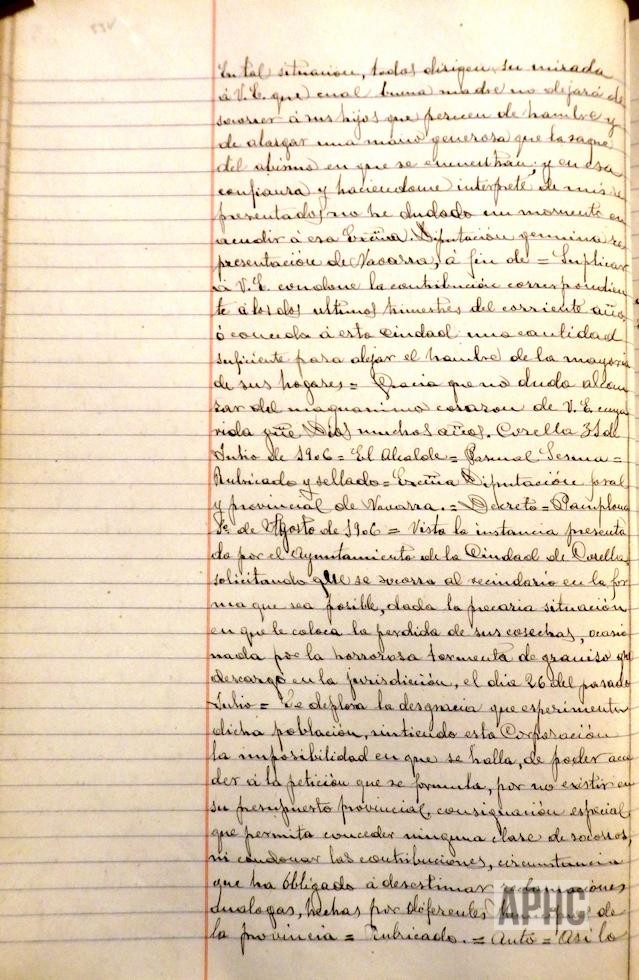 En tal situación, todos dirigen su mirada
á V.E. que cual buena madre no dejará de
socorrer á sus hijos que perecen de hambre y
de alargar una mano generosa que la saque
del abismo en que se encuentran; y en esa
confianza y haciendome interprete de mis re
presentados no he dudado un momento en
acudir á esa Excma. Diputación genuina re
presentación de Navarra, á fin de = Suplicar
á V.E. condone la contribución correspondien
te á los dos ultimos trimestres del corriente año
ó conceda á esta Ciudad una cantidad
suficiente para alejar el hambre de la mayoria
de sus hogares = Gracia que no dudo alcan
zar del magnanimo corazon de V.E. cuya
vida güe Dios muchos años. Corella 31 de
Julio de 1906 = El Alcalde = Pascual Sesma =
Rubricado y sellado = Excma Diputación foral
y provincial de Navarra. = Decreto = Pamplona
1º de Agosto de 1906 = Vista la instancia presenta
da por el Ayuntamiento de la Ciudad de Corella,
solicitando que se socorra al vecindario en la for
ma que sea posible, dada la precaria situación
en que le coloca la perdida de sus cosechas, ocasio
nada por la horrorosa tormenta de granizo que
descargó en la jurisdicción, el dia 26 del pasado
Julio = Se deplora la desgracia que esperimenta
dicha población, sintiendo esta Corporación
la imposibilidad en que se halla, de poder acce
der á la petición que se formula, por no existir en
su presupuesto provincial, consignación especial
que permita conceder ninguna clase de socorros,
ni condonar las contribuciones, circunstancia
que ha obligado á desestimar reclamaciones
analogas, hechas por diferentes Municipios de
la provincia = Rubricado. = Auto = Asi lo
APHC